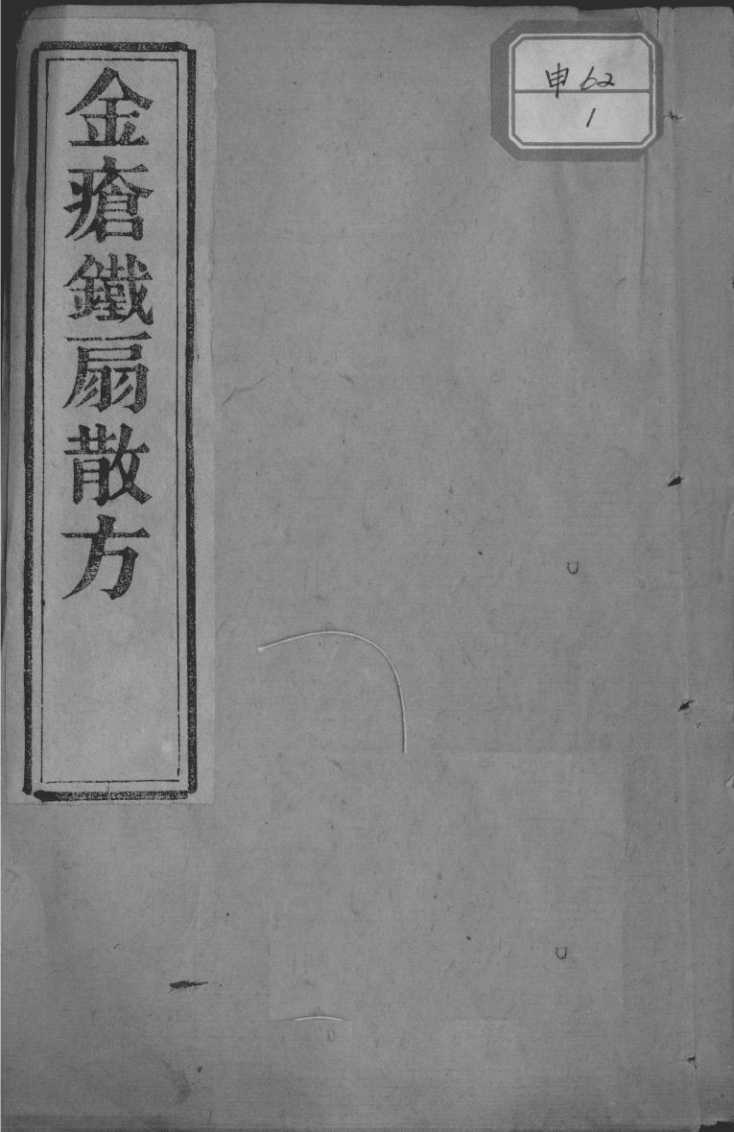 金瘡鐵扇散方
申62
1